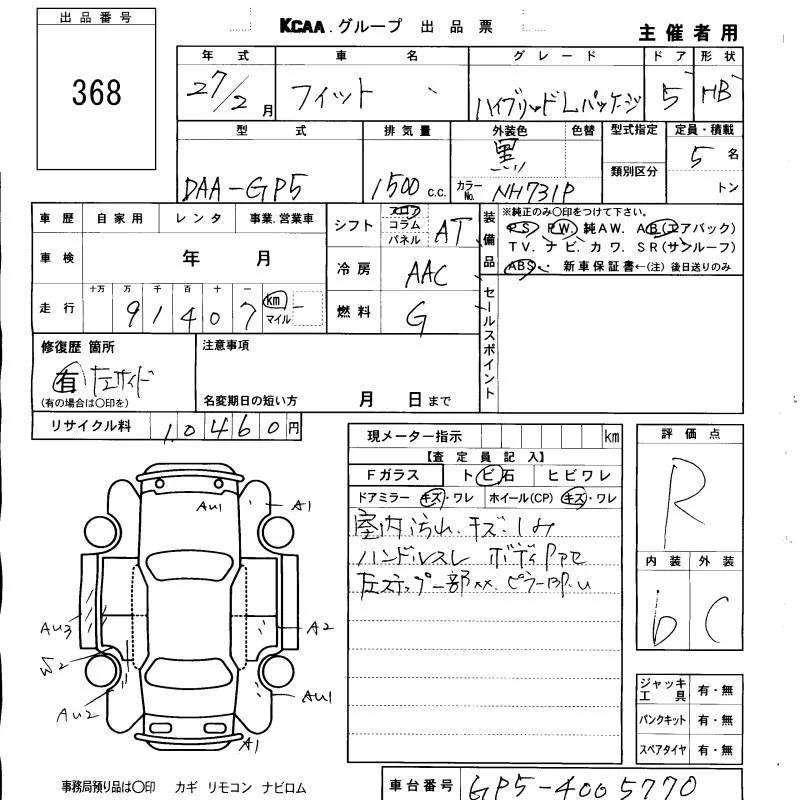 出品番号
368
KCAA.グループ 出品票
主催者用
年式 車名 グレード ドア 形状
27/2月 フィット ハイブリッドLパッケージ 5 HB
型式 排気量 外装色 色替 型式指定 定員・積載
黒 類別区分 5名
DAA-GP5 1500c.c. カラーNo. NH731P トン
車歴 自家用 レンタ 事業.営業車
車検 年 月
十万 万 千 百 十 一
走行 91407 km マイル
シフト フロア コラム パネル AT
冷房 AAC
燃料 G
装備品
※純正のみ○印をつけて下さい。
PS. PW. 純AW. AB(エアバック)
TV. ナビ. カワ. SR(サンルーフ)
ABS. 新車保証書←(注) 後日送りのみ
セールスポイント
修復歴 箇所
有 左サイド
(有の場合は○印を)
注意事項
名変期日の短い方 月 日まで
リサイクル料 10460円
現メーター指示 km
【査定員記入】
Fガラス トビ石 ヒビワレ
ドアミラー キズ・ワレ ホイール(CP) キズ・ワレ
室内汚れ.キズ.しみ
ハンドルスレ ボディPアセ
左ステップ一部xx.ピラーBP.U
評価点
R
内装 外装
b C
ジャッキ工具 有・無
パンクキット 有・無
スペアタイヤ 有・無
AU1
A1
AU3
A2
W2
AU1
AU2
A1
事務局預り品は○印 カギ リモコン ナビロム
車台番号 GP5-4005770